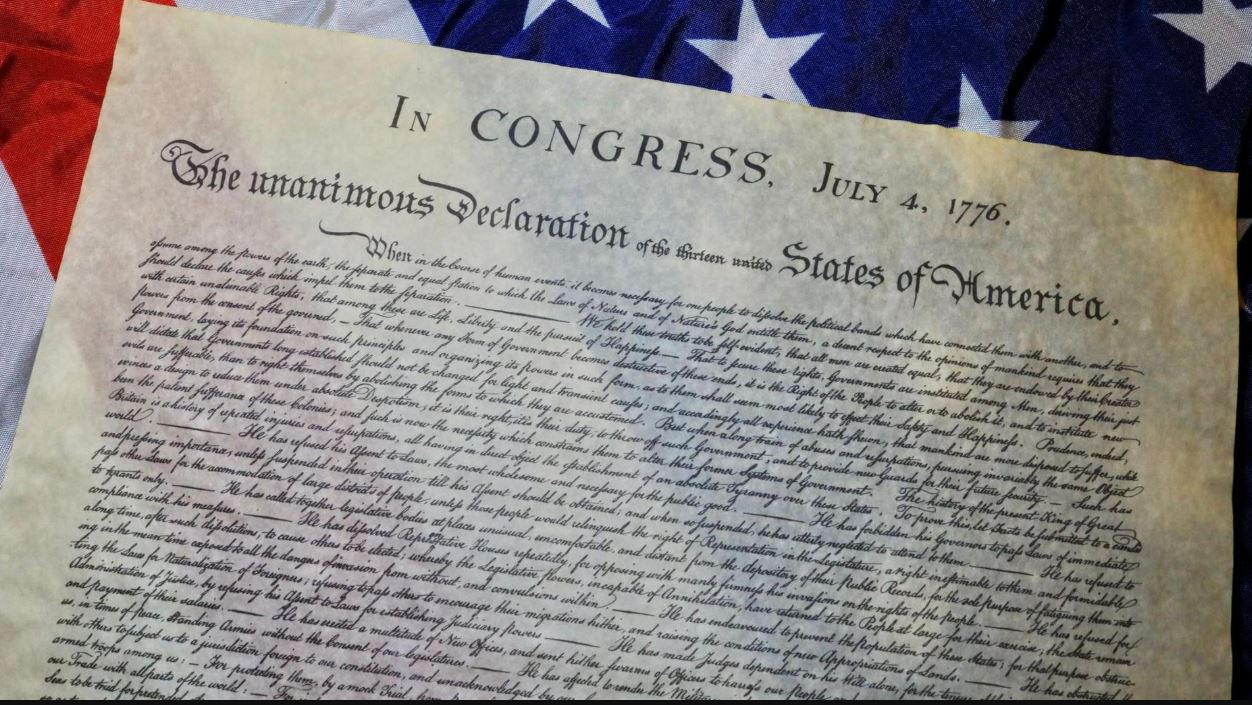 In CONGRESS, July 4, 1776.
The unanimous Declaration of the thirteen united States of America,
When in the Course of human events, it becomes necessary for one people to dissolve the political bands which have connected them with another, and to
assume among the powers of the earth, the separate and equal station to which the Laws of Nature and of Nature's God entitle them, a decent respect to the opinions of mankind requires that they
should declare the causes which impel them to the separation. ——— We hold these truths to be self-evident, that all men are created equal, that they are endowed by their Creator
with certain unalienable Rights, that among these are Life, Liberty and the pursuit of Happiness.— That to secure these rights, Governments are instituted among Men, deriving their just
powers from the consent of the governed, — That whenever any Form of Government becomes destructive of these ends, it is the Right of the People to alter or to abolish it, and to institute new
Government, laying its foundation on such principles and organizing its powers in such form, as to them shall seem most likely to effect their Safety and Happiness. Prudence, indeed,
will dictate that Governments long established should not be changed for light and transient causes; and accordingly all experience hath shewn, that mankind are more disposed to suffer, while
evils are sufferable, than to right themselves by abolishing the forms to which they are accustomed. But when a long train of abuses and usurpations, pursuing invariably the same Object
evinces a design to reduce them under absolute Despotism, it is their right, it is their duty, to throw off such Government, and to provide new Guards for their future security.— Such has
been the patient sufferance of these Colonies; and such is now the necessity which constrains them to alter their former Systems of Government. The history of the present King of Great
Britain is a history of repeated injuries and usurpations, all having in direct object the establishment of an absolute Tyranny over these States. To prove this, let Facts be submitted to a candid
world. ——— He has refused his Assent to Laws, the most wholesome and necessary for the public good. ——— He has forbidden his Governors to pass Laws of immediate
and pressing importance, unless suspended in their operation till his Assent should be obtained; and when so suspended, he has utterly neglected to attend to them. ——— He has refused to
pass other Laws for the accommodation of large districts of people, unless those people would relinquish the right of Representation in the Legislature, a right inestimable to them and formidable
to tyrants only. ——— He has called together legislative bodies at places unusual, uncomfortable, and distant from the depository of their public Records, for the sole purpose of fatiguing them into
compliance with his measures. ——— He has dissolved Representative Houses repeatedly, for opposing with manly firmness his invasions on the rights of the people. ——— He has refused for
a long time, after such dissolutions, to cause others to be elected; whereby the Legislative powers, incapable of Annihilation, have returned to the People at large for their exercise; the State remain-
ing in the mean time exposed to all the dangers of invasion from without, and convulsions within. ——— He has endeavoured to prevent the population of these States; for that purpose obstruc-
ting the Laws for Naturalization of Foreigners; refusing to pass others to encourage their migrations hither, and raising the conditions of new Appropriations of Lands. ——— He has obstructed
Administration of Justice, by refusing his Assent to Laws for establishing Judiciary powers. ——— He has made Judges dependent on his Will alone, for the tenure
and payment of their salaries. ——— He has erected a multitude of New Offices, and sent hither swarms of Officers to harrass our people, and
us, in times of peace, Standing Armies without the Consent of our legislatures. ——— He has affected to render the Military
with others to subject us to a jurisdiction foreign to our constitution, and unacknowledged by our
armed troops among us: — For protecting them, by a mock Trial, from
our Trade with all parts of the world: — For
Seas to be tried for pretended